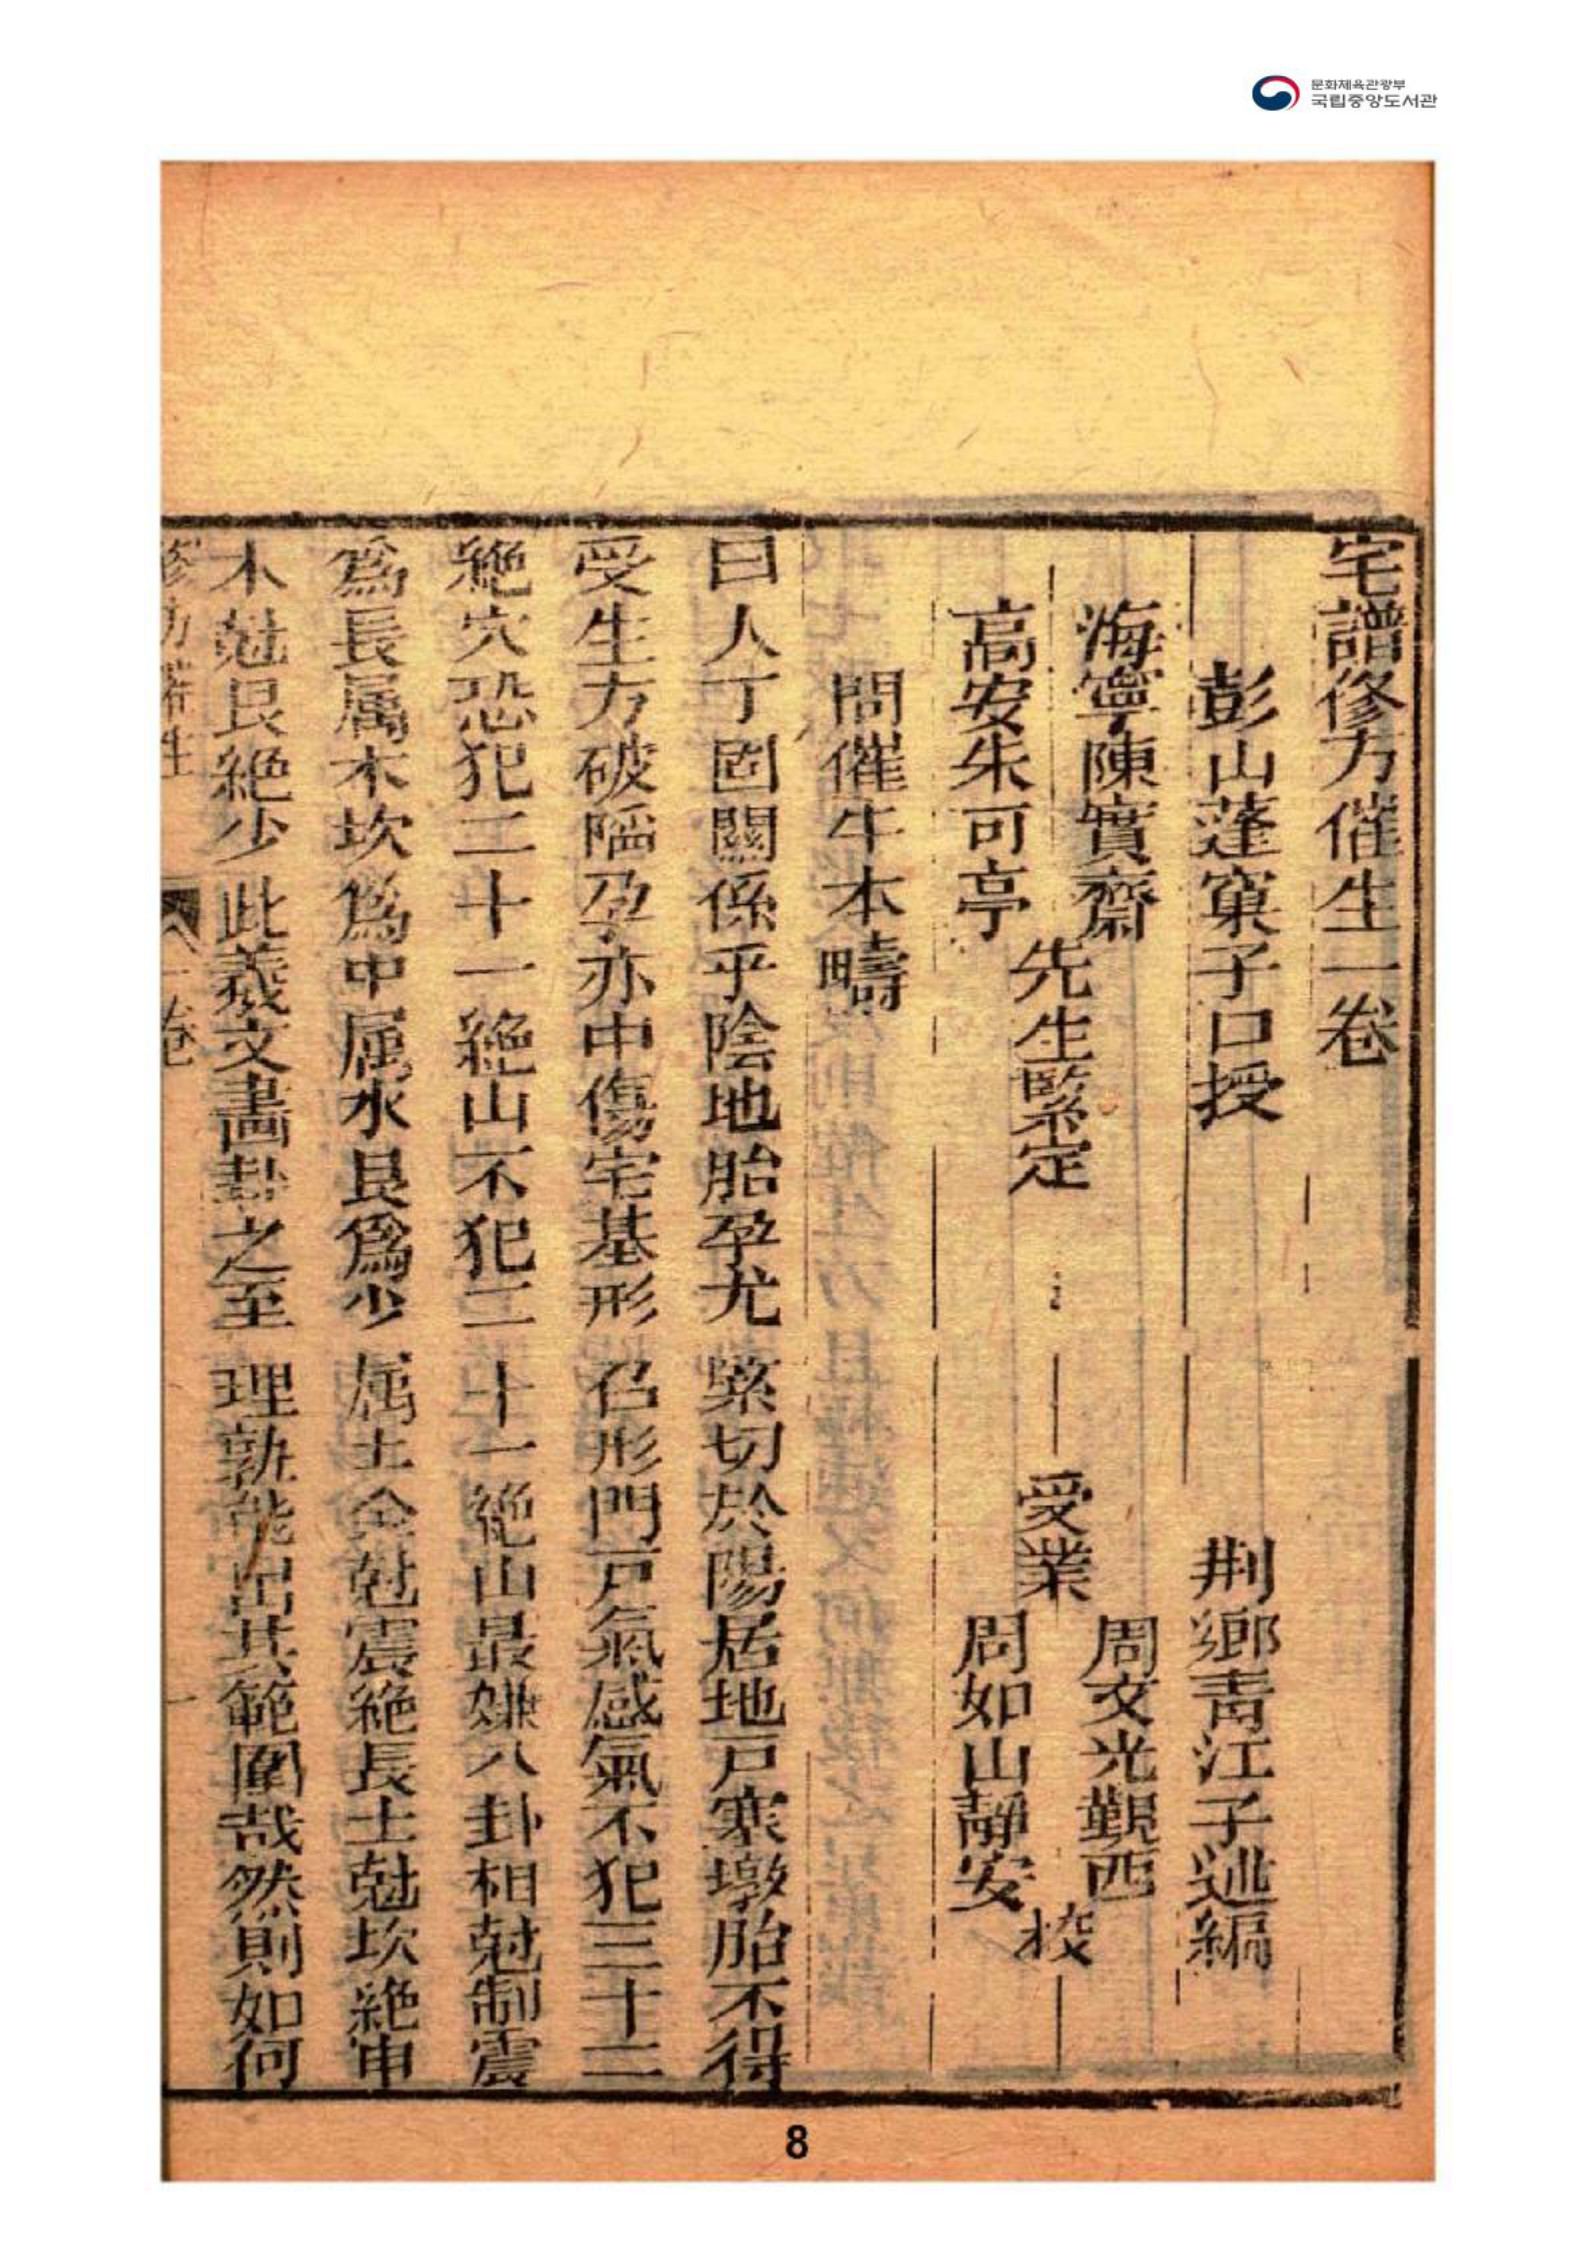 문화체육관광부
국립중앙도서관
宅譜修方催生一卷
彭山蓬窠子口授
荆鄉青江子述編
海寧陳實齋
高安朱可亭
先生鑒定
受業
周文光觀西
周如山靜安
校
問催生本疇
曰人丁固關係乎陰地胎孕尤緊切於陽居地戸寒墩胎不得
受生方破陋孕亦中傷宅基形召形門戸氣感氣不犯三十二
絶穴恐犯二十一絶山不犯二十一絶山最嫌八卦相尅制震
爲長属木坎爲中属水艮爲少属土金尅震絶長土尅坎絶中
木尅艮絶少此羲文畫卦之至理孰能出其範圍哉然則如何
修方催生
一卷
一
8